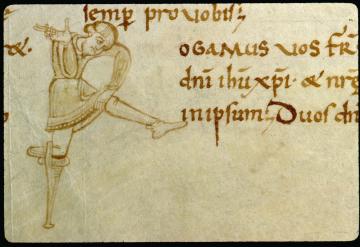 semp pro vobis;
&.
OGAMUS VOS FR̄
dn̄i ihū xp̄i · & nr̄
in ipsum; Duos